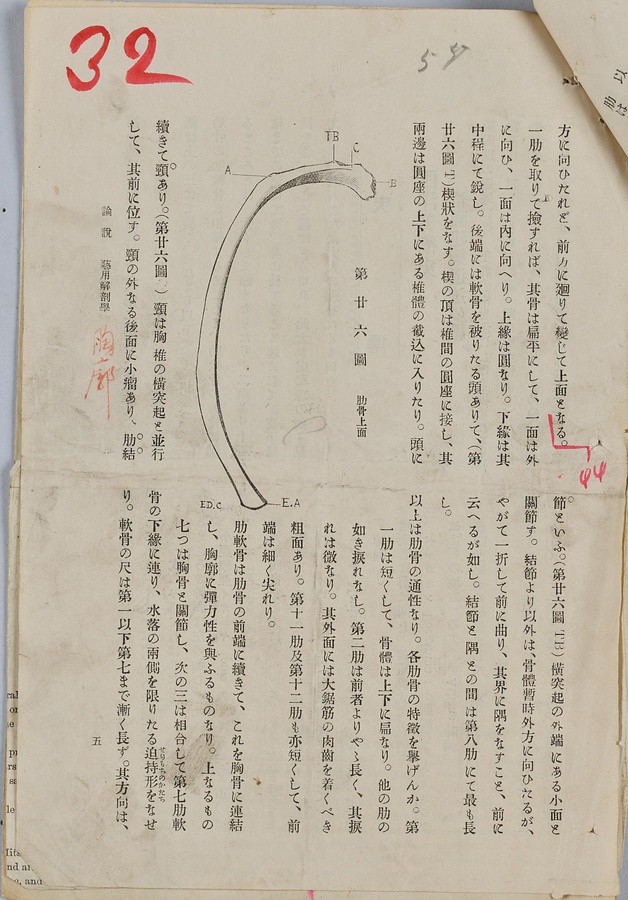 32
方に向ひたれど、前方に廻りて變じて上面となる。
一肋を取りて撿すれば、其骨は扁平にして、一面は外
に向ひ、一面は内に向へり。上緣は圓なり。下緣は其
中程にて銳し。後端には軟骨を被りたる頭ありて、(第
廿六圖 )楔狀をなす。楔の頂は椎間の圓座に接し、其
兩邊は圓座の上下にある椎體の截込に入りたり。頭に
第廿六圖 肋骨上面
TB
C
A
B
E.D.C.
E.A
續きて頸あり。(第廿六圖 ) 頸は胸椎の橫突起と並行
して、其前に位す。頸の外なる後面に小瘤あり、肋結
論說 藝用解剖學
胸廓
44
節といふ。(第廿六圖TB) 橫突起の外端にある小面と
關節す。結節より以外は、骨體暫時外方に向ひたるが、
やがて一折して前に曲り、其界に隅をなすこと、前に
云へるが如し。結節と隅との間は第八肋にて最も長
し。
以上は肋骨の通性なり。各肋骨の特徵を擧げんか。第
一肋は短くして、骨體は上下に扁なり。他の肋の
如き捩れなし。第二肋は前者よりやゝ長く、其捩
れは微なり。其外面には大鋸筋の肉齒を着くべき
粗面あり。第十一肋及第十二肋も亦短くして、前
端は細く尖れり。
肋軟骨は肋骨の前端に續きて、これを胸骨に連結
し、胸廓に彈力性を與ふるものなり。上なるもの
七つは胸骨と關節し、次の三は相合して第七肋軟
骨の下緣に連り、水落の兩側を限りたる迫持形をなせ
せりもちのかたち
り。軟骨の尺は第一以下第七まで漸く長ず。其方向は、
五